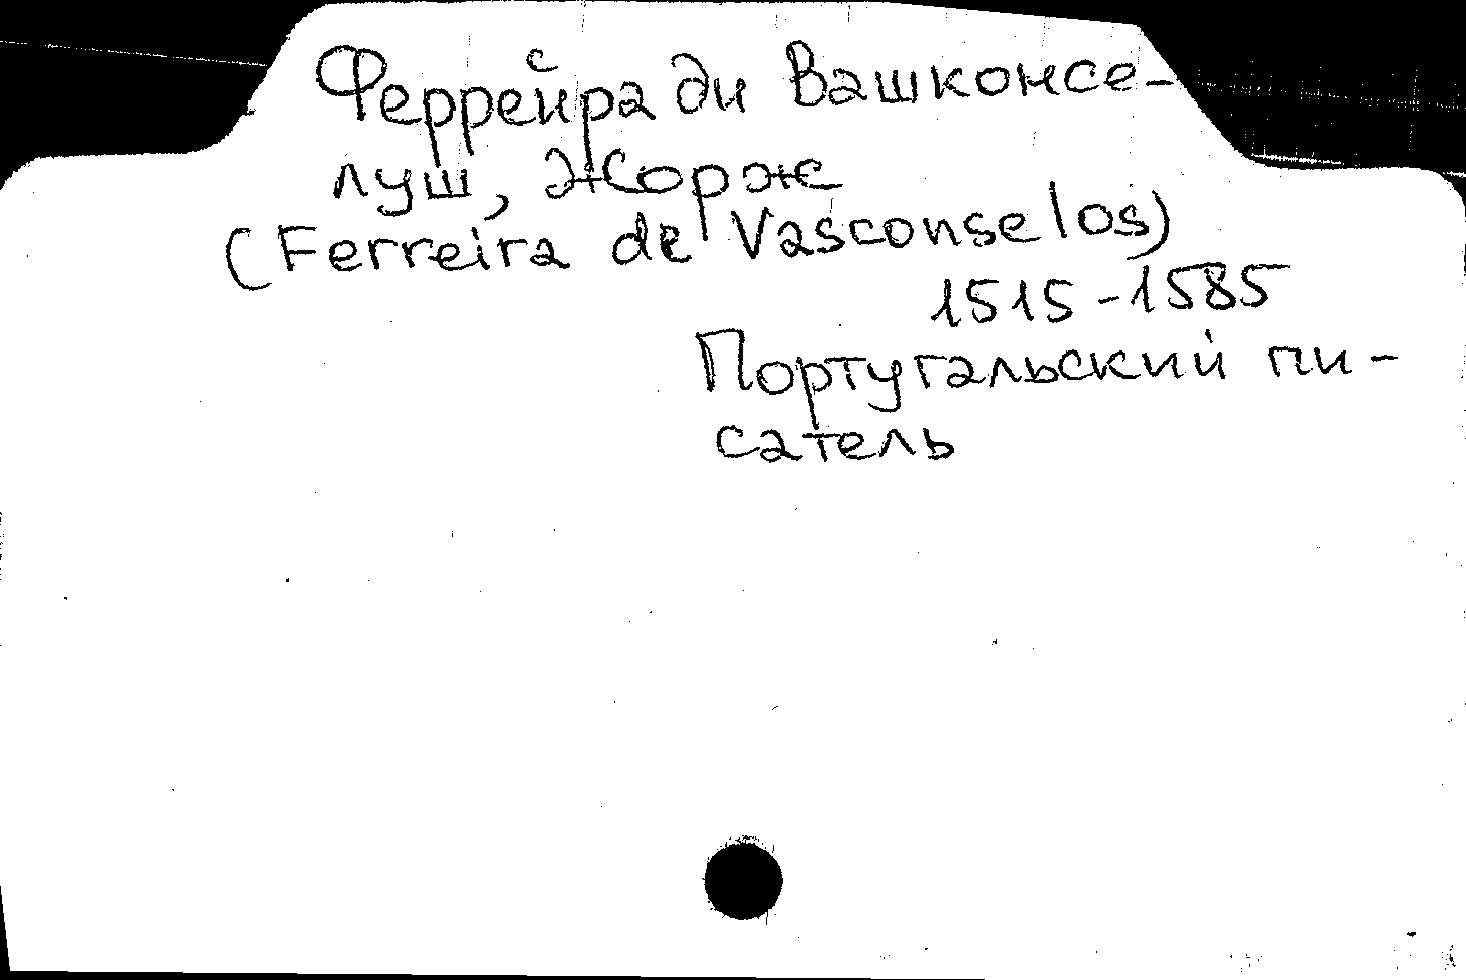 Феррейра ди Вашконсе-
луш, Жорж
(Ferreira de Vasconselos)
1515-1585
Португальский пи-
сатель